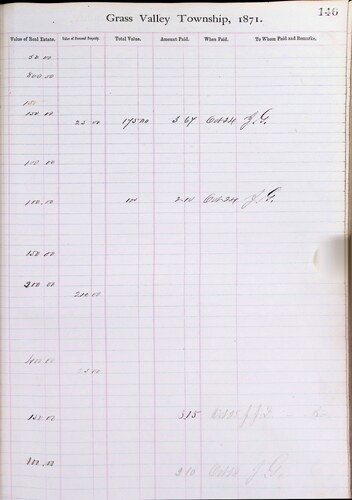 146
Grass Valley Township, 1871.
Value of Real Estate. Value of Personal Property. Total Value. Amount Paid. When Paid. To Whom Paid and Remarks.
50 00
800 00
150 00 25 00 175 00 3 67 Oct 24 J. G.
100 00
100 00 100 2 10 Oct 24 J. G.
150 00
300 00
200 00
400 00
150 00 3 15 Oct
800 00 Oct